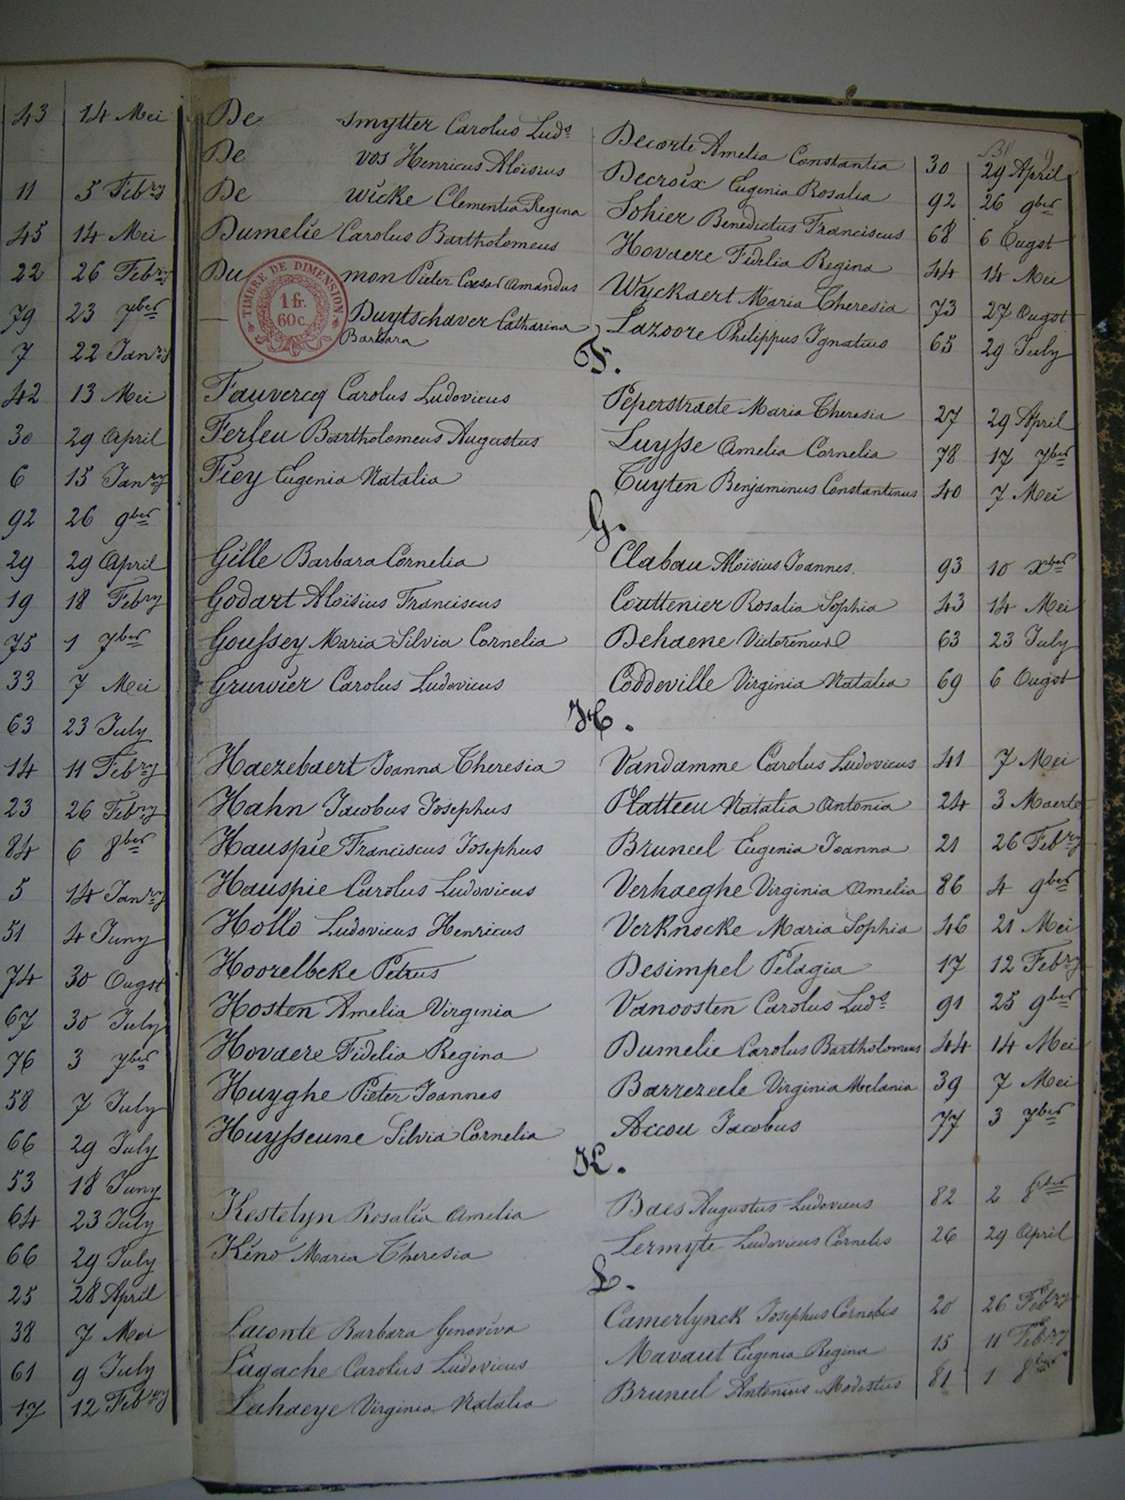 43 14 Mei
11 5 Febry
45 14 Mei
22 26 Febry
79 23 7ber
7 22 Janry
42 13 Mei
30 29 April
6 15 Janry
92 26 9ber
29 29 April
19 18 Febry
75 1 7ber
33 7 Mei
63 23 July
14 11 Febry
23 26 Febry
84 6 8ber
5 14 Janry
51 4 Juny
74 30 Ougst
67 30 July
76 3 7ber
58 7 July
66 29 July
53 18 Juny
64 23 July
66 29 July
25 28 April
38 7 Mei
61 9 July
17 12 Febry
De smytter Carolus Luds Decorte Amelia Constantia 30 29 April
De vos Henricus Aloisius Decroix Eugenia Rosalia 92 26 9ber
De wicke Clementia Regina Sohier Benedictus Franciscus 68 6 Ougst
Dumelie Carolus Bartholomeus Hovaere Fidelia Regina 44 14 Mei
Dumon Pieter Caesar Amandus Wyckaert Maria Theresia 73 27 Ougst
— Duytschaver Catharina Lazoore Philippus Ignatius 65 29 July
Barbara
TIMBRE DE DIMENSION
1 fr.
60 c.
F.
Fauvercq Carolus Ludovicus Peperstraete Maria Theresia 27 29 April
Ferleu Bartholomeus Augustus Luysse Amelia Cornelia 78 17 7ber
Fiey Eugenia Natalia Tuyten Benjaminus Constantinus 40 7 Mei
G.
Gille Barbara Cornelia Clabau Aloïsius Joannes. 93 10 xber
Godart Aloïsius Franciscus Couttenier Rosalia Sophia 43 14 Mei
Goussey Maria Silvia Cornelia Dehaene Victorinus 63 23 July
Gruwier Carolus Ludovicus Coddeville Virginia Natalia 69 6 Ougst
H.
Haezebaert Joanna Theresia Vandamme Carolus Ludovicus 41 7 Mei
Hahn Jacobus Josephus Platteeu Natalia Antonia 24 3 Maerte
Hauspie Franciscus Josephus Bruneel Eugenia Joanna 21 26 Febry
Hauspie Carolus Ludovicus Verhaeghe Virginia Amelia 86 4 9ber
Hollo Ludovicus Henricus Verknocke Maria Sophia 46 21 Mei
Hoorelbeke Petrus Desimpel Pelagia 17 12 Febry
Hosten Amelia Virginia Vanoosten Carolus Luds 91 25 9ber
Hovaere Fidelia Regina Dumelie Carolus Bartholomeus 44 14 Mei
Huyghe Pieter Joannes Barrezeele Virginia Melania 39 7 Mei
Huysseune Silvia Cornelia Accou Jacobus 77 3 7ber
K.
Kestelyn Rosalia Amelia Baes Augustus Ludovicus 82 2 8ber
Kino Maria Theresia Lermyte Ludovicus Cornelis 26 29 April
L.
Laconte Barbara Genoviva Camerlynck Josephus Cornelis 20 26 Febry
Lagache Carolus Ludovicus Mavaut Eugenia Regina 15 11 Febry
Lahaeye Virginia Natalia Bruneel Antonius Modestus 81 1 8ber